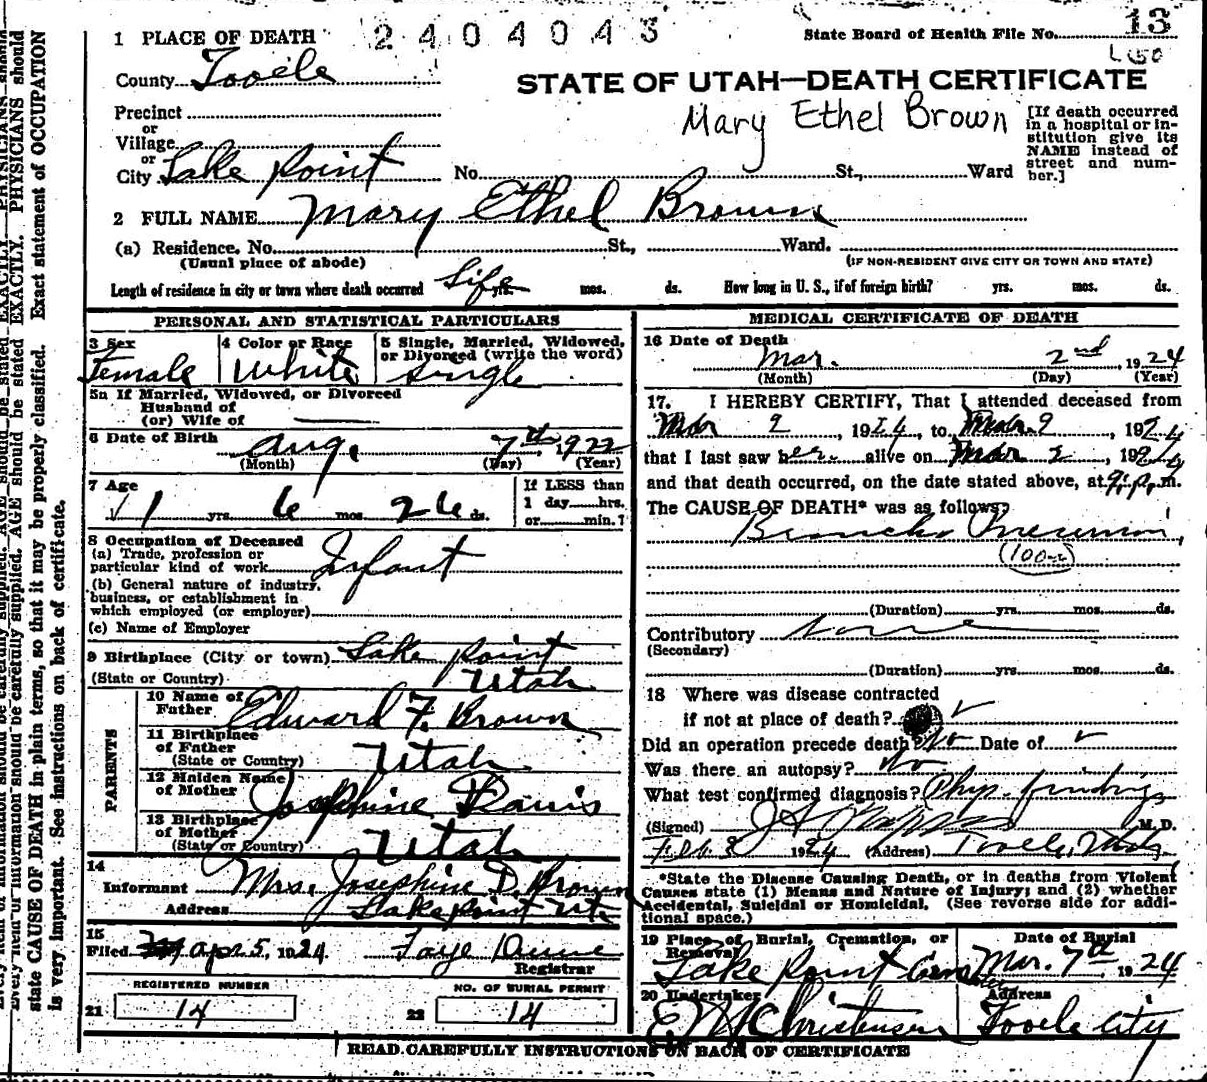 1 PLACE OF DEATH 2404043 State Board of Health File No. 13
County Tooele L60
STATE OF UTAH—DEATH CERTIFICATE
Precinct
or
Village
or
City Lake Point No. St., Ward
Mary Ethel Brown
[If death occurred
in a hospital or in-
stitution give its
NAME instead of
street and num-
ber.]
2 FULL NAME Mary Ethel Brown
(a) Residence, No. St., Ward.
(Usual place of abode) (IF NON-RESIDENT GIVE CITY OR TOWN AND STATE)
Length of residence in city or town where death occurred Life yrs. mos. ds. How long in U. S., if of foreign birth? yrs. mos. ds.
PERSONAL AND STATISTICAL PARTICULARS
3 Sex
Female
4 Color or Race
White
5 Single, Married, Widowed,
or Divorced (write the word)
Single
5a If Married, Widowed, or Divorced
Husband of
(or) Wife of
6 Date of Birth Aug. 7th, 1922
(Month) (Day) (Year)
7 Age
1 yrs. 6 mos. 26 ds.
If LESS than
1 day hrs.
or min.?
8 Occupation of Deceased
(a) Trade, profession or
particular kind of work Infant
(b) General nature of industry,
business, or establishment in
which employed (or employer)
(c) Name of Employer
9 Birthplace (City or town) Lake Point
(State or Country) Utah
PARENTS
10 Name of
Father Edward F. Brown
11 Birthplace
of Father
(State or Country) Utah
12 Maiden Name
of Mother Josephine Davis
13 Birthplace
of Mother
(State or Country) Utah
14
Informant Mrs. Josephine D. Brown
Address Lake Point Ut.
15
Filed Apr 5, 1924 Faye Dunne
Registrar
REGISTERED NUMBER
21 14
NO. OF BURIAL PERMIT
22 14
MEDICAL CERTIFICATE OF DEATH
16 Date of Death
Mar. 2nd, 1924
(Month) (Day) (Year)
17. I HEREBY CERTIFY, That I attended deceased from
Mar 2, 1924, to Mar. 2, 1924
that I last saw her alive on Mar 2, 1924
and that death occurred, on the date stated above, at 9 p. m.
The CAUSE OF DEATH* was as follows:
Broncho Pneumonia,
(100-a)
(Duration) yrs. mos. ds.
Contributory none
(Secondary)
(Duration) yrs. mos. ds.
18 Where was disease contracted
if not at place of death?
Did an operation precede death? No Date of
Was there an autopsy? No
What test confirmed diagnosis? Phys. findings
(Signed) M. D.
Feb. 3 1924 (Address) Tooele, Utah
*State the Disease Causing Death, or in deaths from Violent
Causes state (1) Means and Nature of Injury; and (2) whether
Accidental, Suicidal or Homicidal. (See reverse side for addi-
tional space.)
19 Place of Burial, Cremation, or
Removal
Lake Point Cemetery
Date of Burial
Mar. 7th, 1924
20 Undertaker
E. M. Christensen
Address
Tooele City
READ CAREFULLY INSTRUCTIONS ON BACK OF CERTIFICATE
Every item of information should be carefully supplied. AGE should be stated EXACTLY. PHYSICIANS should
state CAUSE OF DEATH in plain terms, so that it may be properly classified. Exact statement of OCCUPATION
is very important. See instructions on back of certificate.